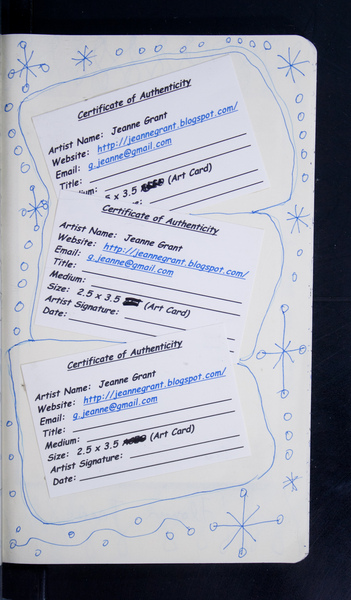 Certificate of Authenticity
Artist Name: Jeanne Grant
Website: http://jeannegrant.blogspot.com/
Email: g.jeanne@gmail.com
Title:
x 3.5 (Art Card)
Certificate of Authenticity
Artist Name: Jeanne Grant
Website: http://jeannegrant.blogspot.com/
Email: g.jeanne@gmail.com
Title:
Medium:
Size: 2.5 x 3.5 (Art Card)
Artist Signature:
Date:
Certificate of Authenticity
Artist Name: Jeanne Grant
Website: http://jeannegrant.blogspot.com/
Email: g.jeanne@gmail.com
Title:
Medium:
Size: 2.5 x 3.5 (Art Card)
Artist Signature:
Date: